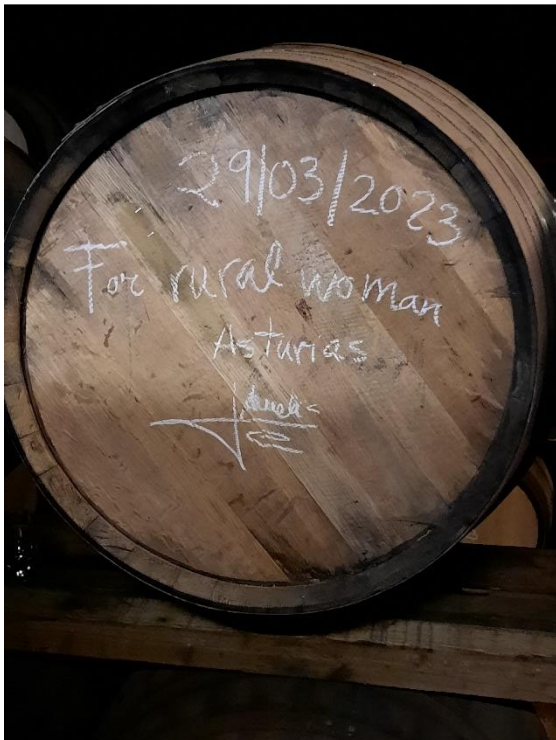 29/03/2023
For rural woman
Asturias